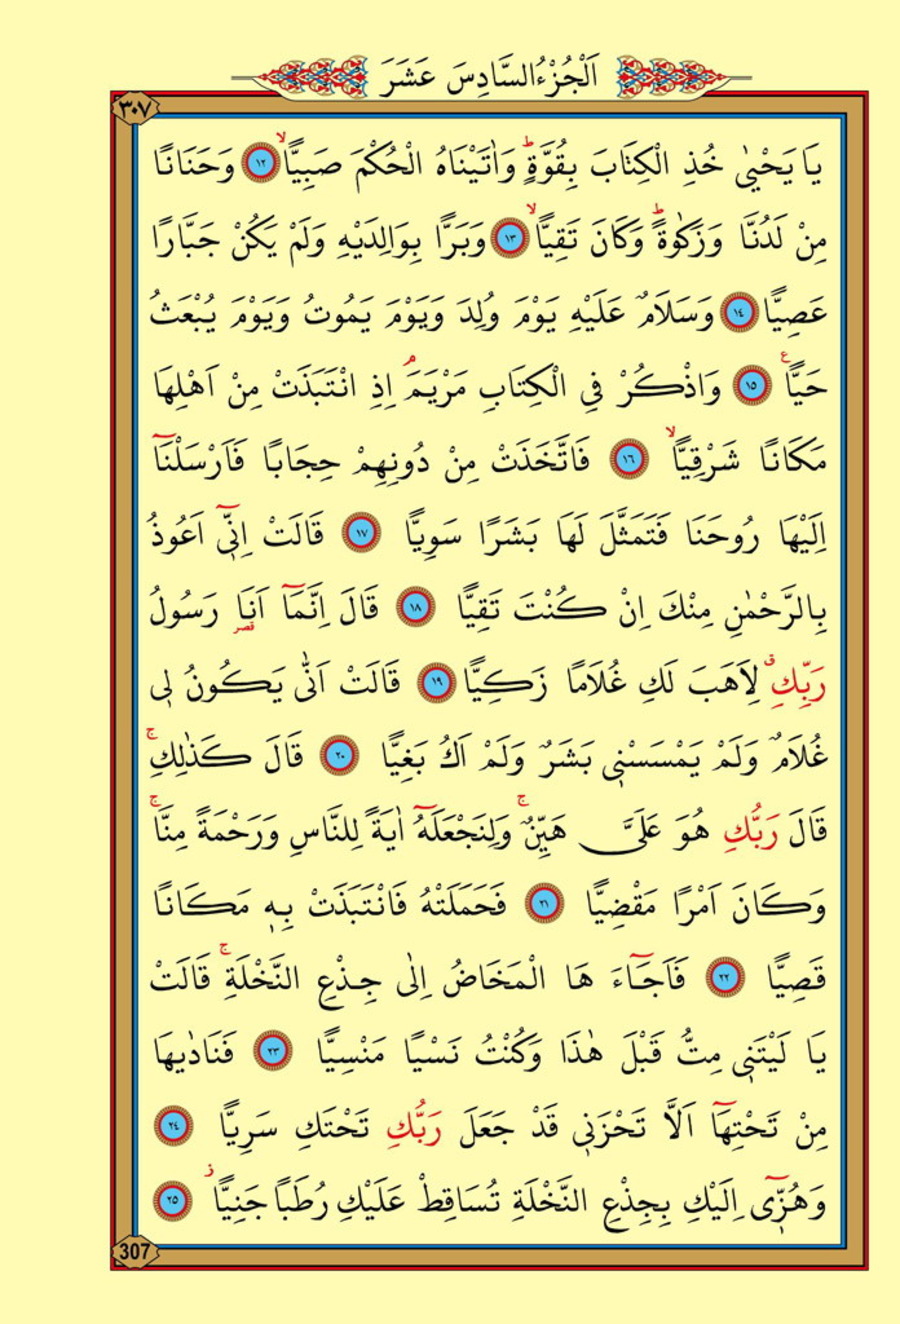 اَلْجُزْءُ السَّادِسَ عَشَرَ
٣٠٧
يَا يَحْيٰى خُذِ الْكِتَابَ بِقُوَّةٍۜ وَاٰتَيْنَاهُ الْحُكْمَ صَبِيًّاۙ ١٢ وَحَنَانًا
مِنْ لَدُنَّا وَزَكٰوةًۜ وَكَانَ تَقِيًّاۙ ١٣ وَبَرًّا بِوَالِدَيْهِ وَلَمْ يَكُنْ جَبَّارًا
عَصِيًّا ١٤ وَسَلَامٌ عَلَيْهِ يَوْمَ وُلِدَ وَيَوْمَ يَمُوتُ وَيَوْمَ يُبْعَثُ
حَيًّا ع ١٥ وَاذْكُرْ فِي الْكِتَابِ مَرْيَمَۢ اِذِ انْتَبَذَتْ مِنْ اَهْلِهَا
مَكَانًا شَرْقِيًّاۙ ١٦ فَاتَّخَذَتْ مِنْ دُونِهِمْ حِجَابًا فَاَرْسَلْنَٓا
اِلَيْهَا رُوحَنَا فَتَمَثَّلَ لَهَا بَشَرًا سَوِيًّا ١٧ قَالَتْ اِنّ۪ٓي اَعُوذُ
بِالرَّحْمٰنِ مِنْكَ اِنْ كُنْتَ تَقِيًّا ١٨ قَالَ اِنَّمَٓا اَنَا۬ قصر رَسُولُ
رَبِّكِۗ لِاَهَبَ لَكِ غُلَامًا زَكِيًّا ١٩ قَالَتْ اَنّٰى يَكُونُ ل۪ي
غُلَامٌ وَلَمْ يَمْسَسْن۪ي بَشَرٌ وَلَمْ اَكُ بَغِيًّا ٢٠ قَالَ كَذٰلِكِۚ
قَالَ رَبُّكِ هُوَ عَلَيَّ هَيِّنٌۚ وَلِنَجْعَلَهُٓ اٰيَةً لِلنَّاسِ وَرَحْمَةً مِنَّاۚ
وَكَانَ اَمْرًا مَقْضِيًّا ٢١ فَحَمَلَتْهُ فَانْتَبَذَتْ بِه۪ مَكَانًا
قَصِيًّا ٢٢ فَاَجَٓاءَ هَا الْمَخَاضُ اِلٰى جِذْعِ النَّخْلَةِۚ قَالَتْ
يَا لَيْتَن۪ي مِتُّ قَبْلَ هٰذَا وَكُنْتُ نَسْيًا مَنْسِيًّا ٢٣ فَنَادٰيهَا
مِنْ تَحْتِهَٓا اَلَّا تَحْزَن۪ي قَدْ جَعَلَ رَبُّكِ تَحْتَكِ سَرِيًّا ٢٤
وَهُزّ۪ٓي اِلَيْكِ بِجِذْعِ النَّخْلَةِ تُسَاقِطْ عَلَيْكِ رُطَبًا جَنِيًّا ز ٢٥
307